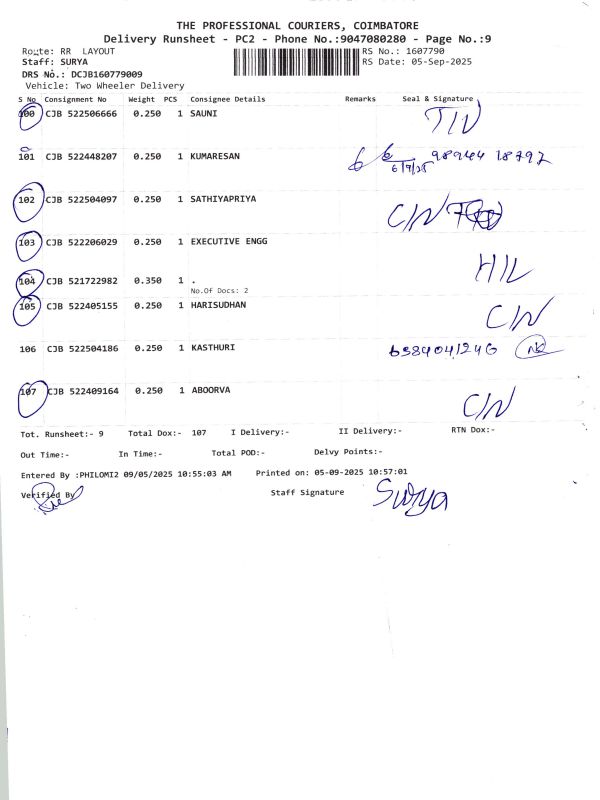 THE PROFESSIONAL COURIERS, COIMBATORE
Delivery Runsheet - PC2 - Phone No.:9047080280 - Page No.:9
Route: RR LAYOUT
RS No.: 1607790
Staff: SURYA
RS Date: 05-Sep-2025
DRS No.: DCJB160779009
Vehicle: Two Wheeler Delivery
S No Consignment No Weight PCS Consignee Details Remarks Seal & Signature
100 CJB 522506666 0.250 1 SAUNI T/N
101 CJB 522448207 0.250 1 KUMARESAN 6/9/25 98944 18797
102 CJB 522504097 0.250 1 SATHIYAPRIYA C/N
103 CJB 522206029 0.250 1 EXECUTIVE ENGG
104 CJB 521722982 0.350 1 . H/L
No.Of Docs: 2
105 CJB 522405155 0.250 1 HARISUDHAN C/N
106 CJB 522504186 0.250 1 KASTHURI 6384041246
107 CJB 522409164 0.250 1 ABOORVA C/N
Tot. Runsheet:- 9 Total Dox:- 107 I Delivery:- II Delivery:- RTN Dox:-
Out Time:- In Time:- Total POD:- Delvy Points:-
Entered By :PHILOMI2 09/05/2025 10:55:03 AM Printed on: 05-09-2025 10:57:01
Verified By Staff Signature Surya